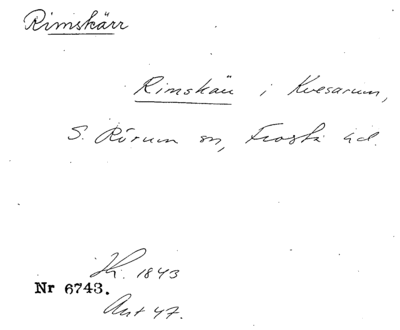 Rimskärr
Rimskärr i Kvesarum,
S. Rörum sn, Frosta hd.
1843
Nr 6743.
Ant 47.